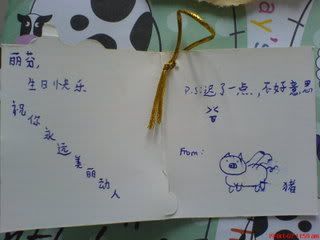 丽芬,
生日快乐
祝你永远美丽动人
P.S:迟了一点,不好意思
><
From:
猪